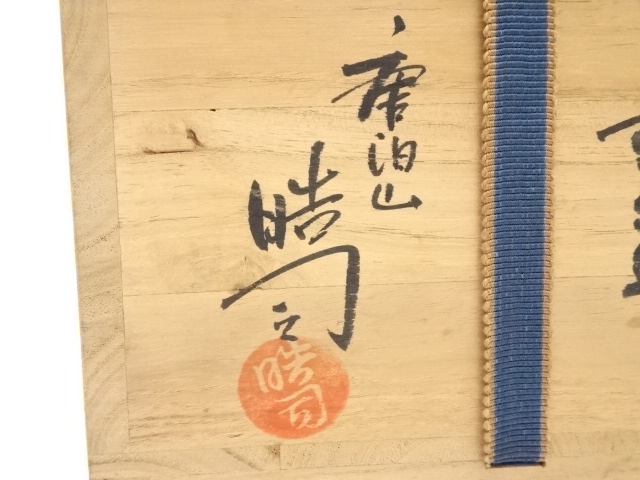 唐泊山
晧司
晧司